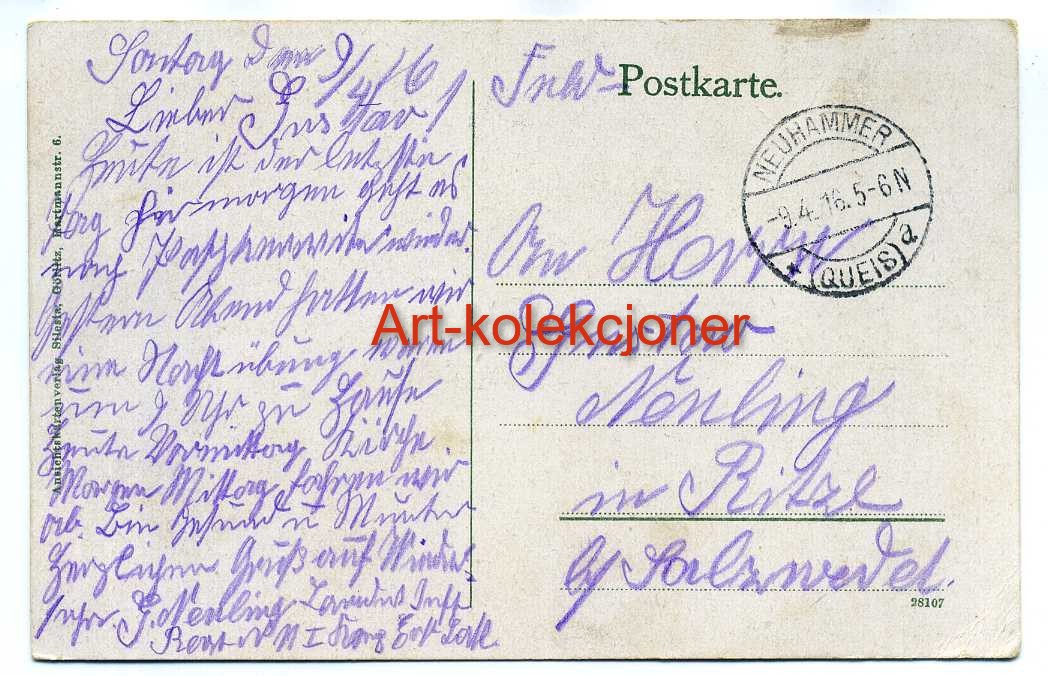 Sontag den 9/4 16
Lieber Gustav!
Heute ist der letzte
Tag hier morgen geht es
nach wieder.
Gestern Abend hatten wir
eine Nacht übung waren
um 9 Uhr zu Hause
heute Vormittag Kirche.
Morgen Mittag fahren wir
ab. Bin Gesund u Munter
Herzlichen Gruß auf Wieder-
sehn. G. Nenling Landst Inft
I
Ansichtskartenverlag Silesia, Görlitz, Hartmannstr. 6.
Postkarte.
NEUHAMMER
-9.4.16.5-6N
* (QUEIS) a
An Herrn
Gustav
Nenling
in Ritze
b/ Salzwedel.
98107
Art-kolekcjoner